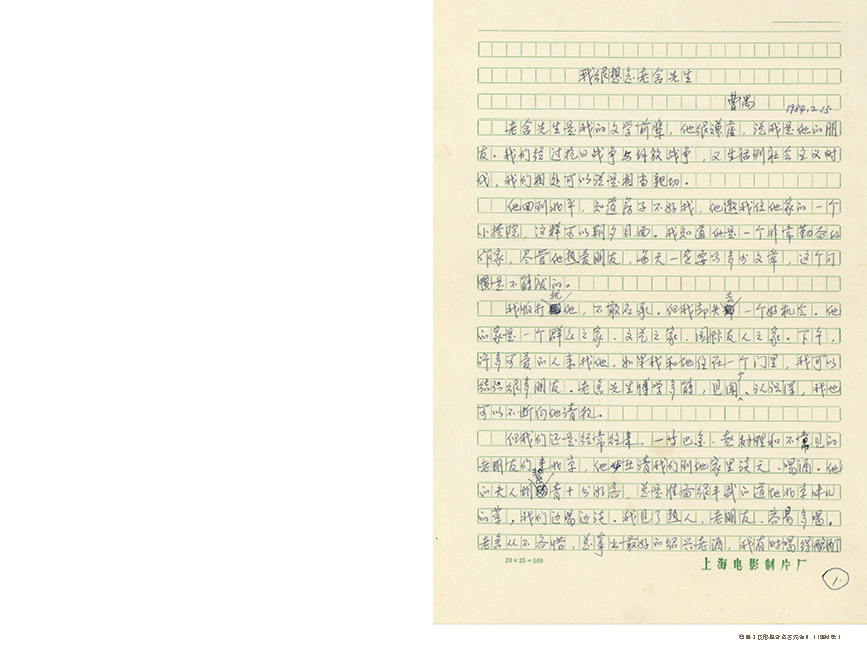 我很想念老舍先生
曹禺 1984.2.15
老舍先生是我的文学前辈，他很谦虚，说我是他的朋
友。我们经过抗日战争与解放战争，又生活到社会主义时
代，我们相处可以说是相当亲切。
他回到北平，知道房子不好找，他邀我住他家的一个
小跨院，这样可以朝夕见面。我知道他是一个非常勤奋的
作家，尽管他热爱朋友，每天一定要写多少文章，这个习
惯是不能改的。
我怕打扰他，不敢应承。但我却失去一个好机会。他
的家是一个群众之家、文艺之家、国际友人之家。下午，
许多可爱的人来找他。如果我和他住在一个门里，我可以
结识很多朋友。老舍先生博学多能，见闻、认识深，我也
可以不断向他请教。
但我们还是经常往来。一些巴金、赵树理和不常见的
老朋友们来北京，他请我们到他家里谈天、喝酒。他
的夫人胡絜青十分好客，总是准备很丰盛的道地北京味儿
的菜，我们边喝边谈。我见了熟人，老朋友，容易多喝。
老舍从不吝惜，总拿出最好的绍兴老酒，我有时喝得酩酊
20×25=500
上海电影制片厂
1.